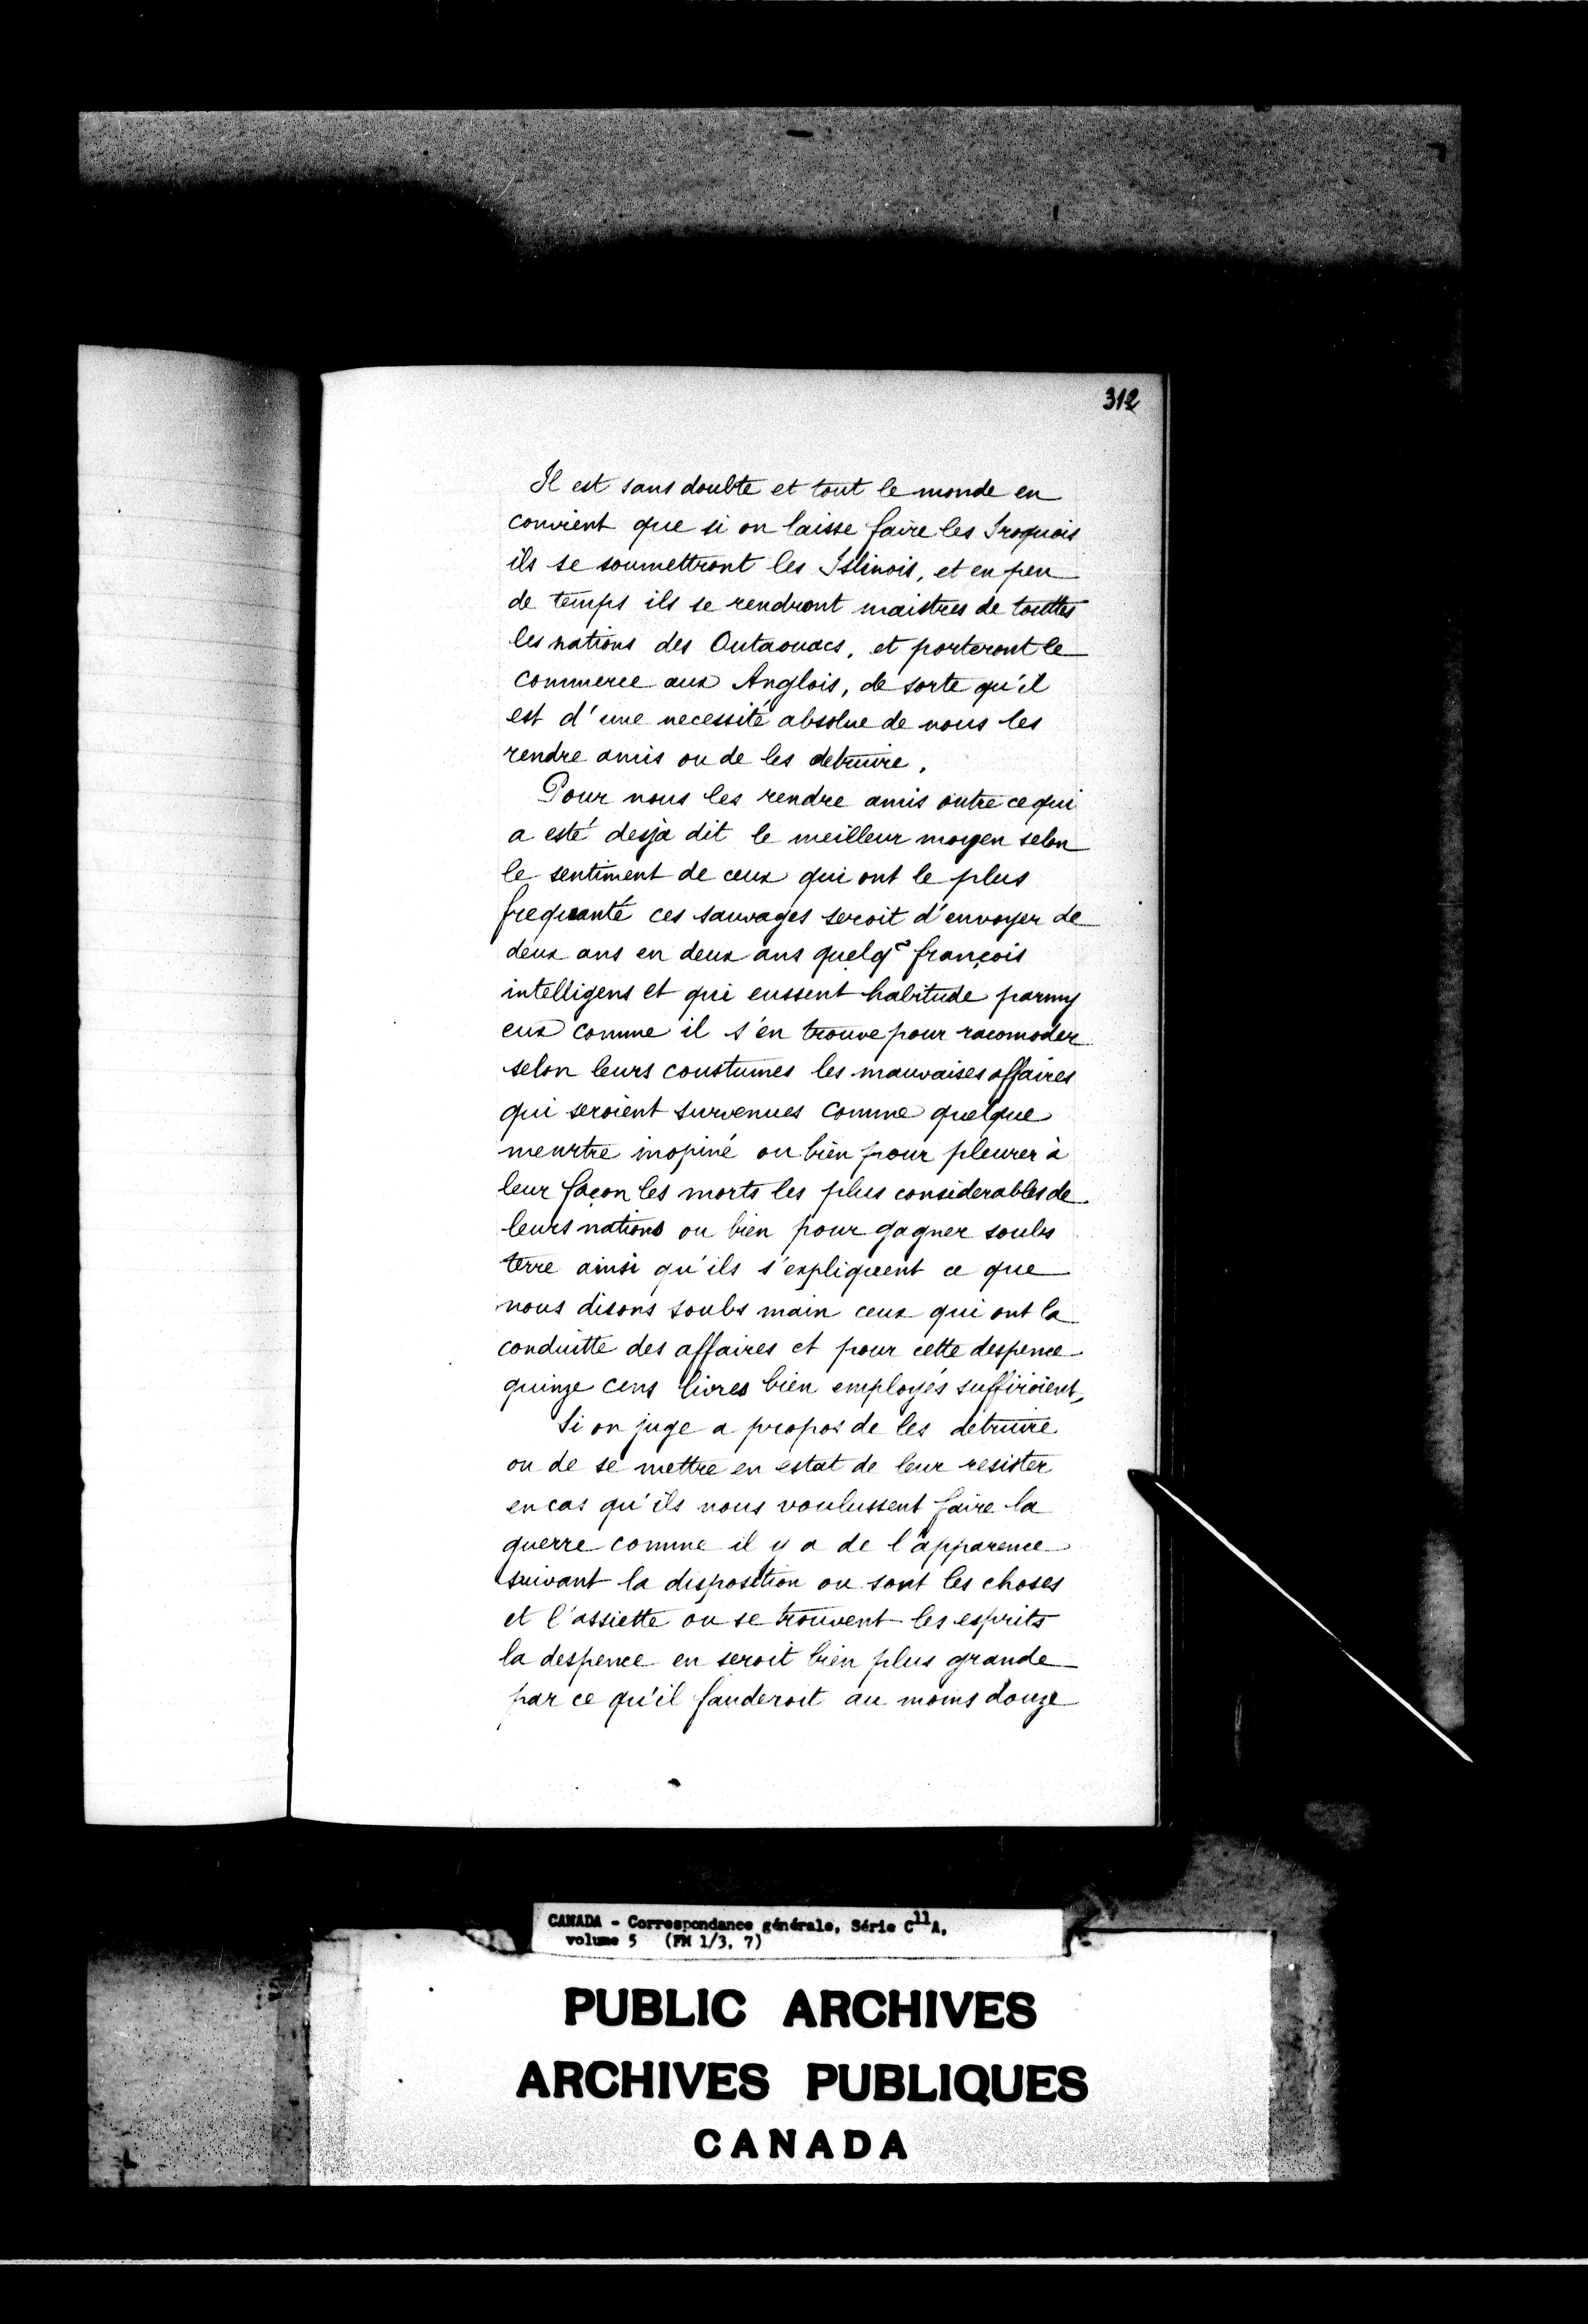 312
Il est sans doubte et tout le monde en
convient que si on laisse faire les Iroquois
ils se soumettront les Islinois, et en peu
de temps ils se rendront maistres de touttes
les nations des Outaouacs, et porteront le
commerce aux Anglois, de sorte qu'il
est d'une necessité absolue de nous les
rendre amis ou de les detruire.
Pour nous les rendre amis outre ce qui
a esté desja dit le meilleur moyen selon
le sentiment de ceux qui ont le plus
frequanté ces sauvages seroit d'envoyer de
deux ans en deux ans quelqe françois
intelligens et qui eussent habitude parmy
eux comme il s'en trouve pour racomoder
selon leurs coustumes les mauvaises affaires
qui seroient survenues comme quelque
meurtre inopiné ou bien pour pleurer à
leur façon les morts les plus considerables de
leurs nations ou bien pour gagner soubs
terre ainsi qu'ils s'expliquent ce que
nous disons soubs main ceux qui ont la
conduitte des affaires et pour cette despence
quinze cens livres bien employés suffiroient,
Si on juge a propos de les detruire
ou de se mettre en estat de leur resister
en cas qu'ils nous voulussent faire la
guerre comme il y a de l'apparence
suivant la disposition ou sont les choses
et l'assiette ou se trouvent les esprits
la despence en seroit bien plus grande
par ce qu'il fauderoit au moins douze
CANADA - Correspondance générale, Série C11A,
volume 5 (FM 1/3, 7)
PUBLIC ARCHIVES
ARCHIVES PUBLIQUES
CANADA